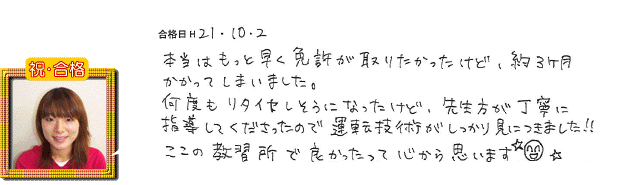 合格日 H 21・10・2
本当はもっと早く免許が取りたかったけど、約3ヶ月
かかってしまいました。
祝・合格
何度もリタイヤしそうになったけど、先生方が丁寧に
指導してくださったので運転技術がしっかり見につきました!!
ここの教習所で良かったって心から思います